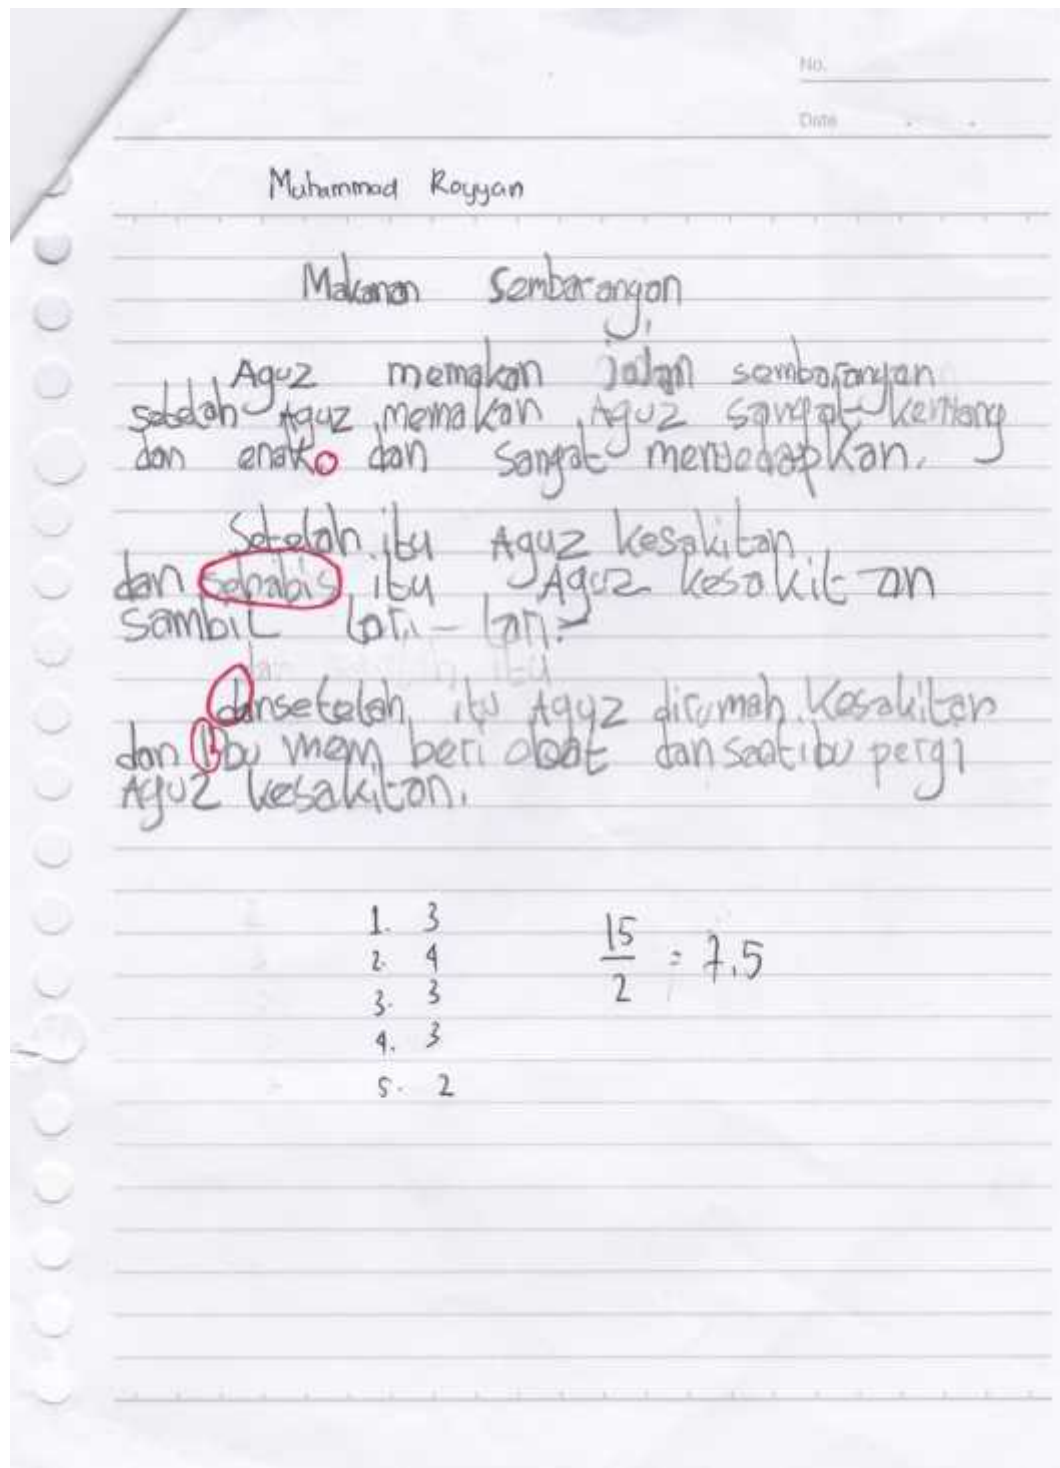 No.
Date
Muhammad Royyan
Makanan Sembarangan
Aguz memakan jalan sembarangan
setelah Aguz memakan Aguz sangat kennang
dan enak dan sangat menyedapkan.
Setelah itu Aguz kesakitan
dan sehabis itu Aguz kesakitan
sambil lari-lari.
dan setelah itu
dansetelah itu Aguz dirumah kesakitan
dan Ibu mem beri obat dan saat ibu pergi
Aguz kesakitan.
1. 3
2. 4
3. 3
4. 3
5. 2
15/2 = 7,5